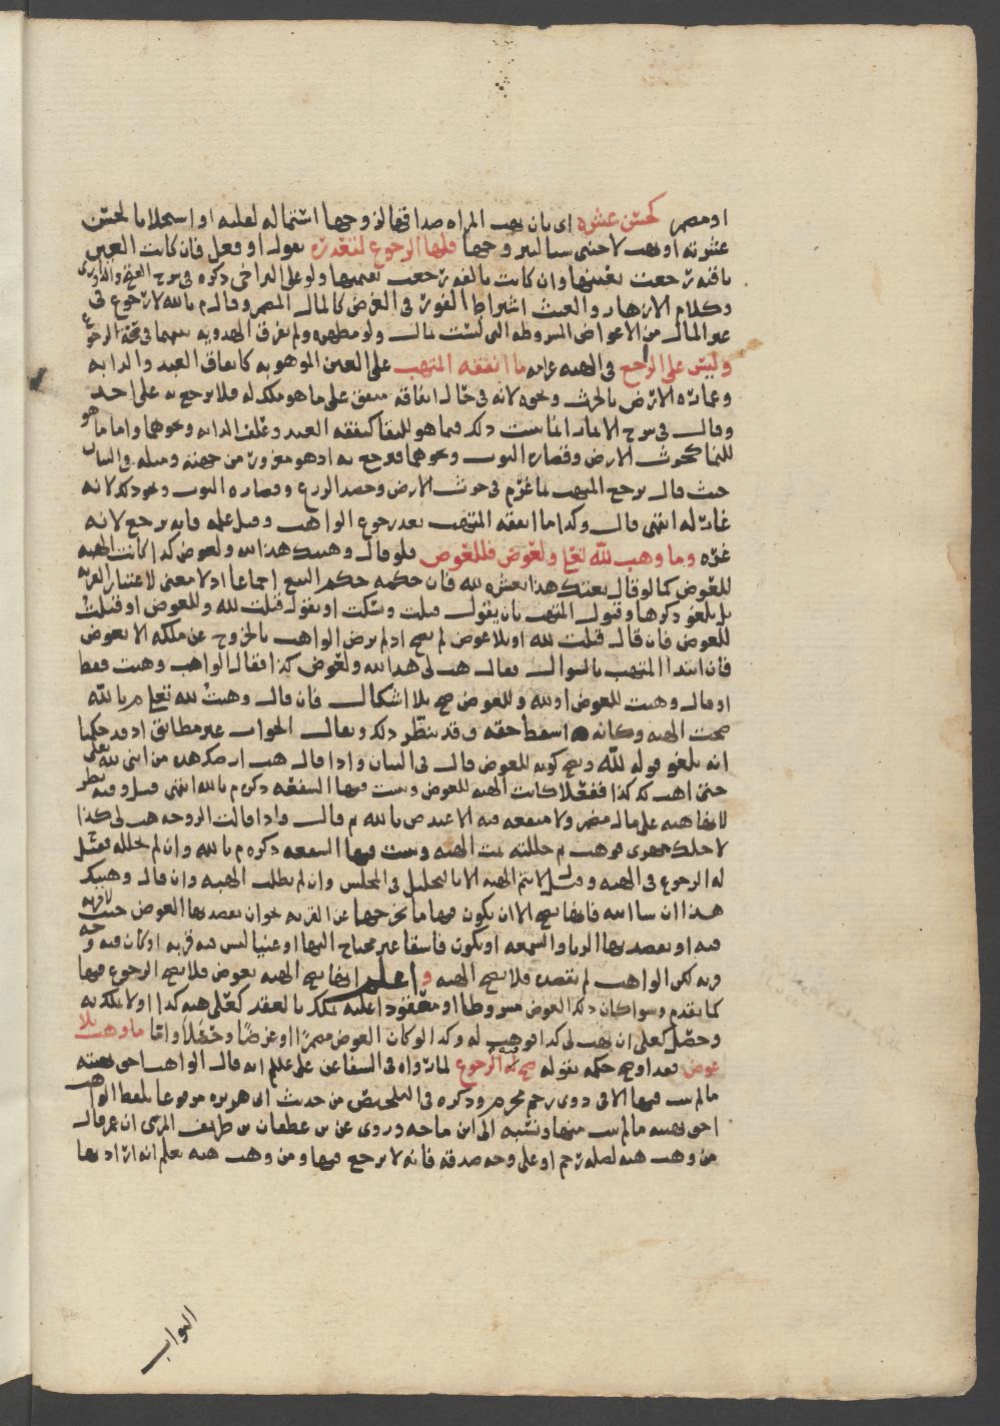 او مضمر كحسن عشره اى بان يهب المراه صداقها لزوجها استماله لقلبه او استجلابا لحسن
عشرته او يهب لاجنبى سالبر وجها فلها الرجوع لتعذره بقول او فعل فان كانت العين
باقيه رجعت بعينها وان كانت تالفه رجعت بقيمتها ولو على التراخى ذكره فى شرح الفتح
وكلام الازهار والغيث اشتراط الفور فى الغرض كالمال المضمر وقال م بالله لا رجوع فى
غير المال من الاعواض المشروطه التى ليست بمال ولو مظهره ولم يفرق الهدويه بينهما فى صحة الرجوع
وليس على الراجع فى الهبه غرامه ما انفقه المتهب على العين الموهوبه كانفاق العبد والدابه
وعمارة الارض بالحرث ونحوه لانه فى حال انفاقه منفق على ما هو ملك له فلا يرجع به على احد
وقال فى شرح الاثمار انما يثبت ذلك فيما هو للبقا كنفقه العبد وعلف الدابه ونحوهما واما ما هو
للنما كحرث الارض وقصارة الثوب ونحوهما فيرجع به اذ هو مغرور من جهته ومثله فى البيان
حيث قال يرجع المتهب بما غرم فى حرث الارض وحصد الزرع وقصاره الثوب ونحو ذلك لانه
غار له انتهى قال وكذا ما انفقه المتهب بعد رجوع الواهب وقبل علمه فانه يرجع لانه
غره وما وهب لله تعالى ولعوض فللعوض فلو قال وهبتك هذا لله ولعوض كذا كانت الهبه
للعوض كما لو قال بعتك هذا بعشره لله فان حكمه حكم البيع اجماعا اذ لا معنى لاعتبار القربه
بل يلغو ذكرها وقبول المتهب بان يقول قبلت وسكت او يقول قبلت لله وللعوض او قبلت
للعوض فان قال قبلت لله او بلا عوض لم يصح اذ لم يرض الواهب بالخروج عن ملكه الا بعوض
فان ابتدا المتهب بالسوال فقال هب لى هذا لله ولعوض كذا فقال الواهب وهبت فقط
او قال وهبت للعوض او لله وللعوض صح بلا اشكال فان قال وهبت لله تعالى م بالله
صحت الهبه وكانه اسقط حقه وقد ينظر ذلك ويقال الجواب غير مطابق اذ قد حكمنا
انه يلغو قوله لله ويصح كونه للعوض قال فى البيان واذا قال هب ارضك هذه من ابنى لله تعالى
حتى اهب لك كذا ففعلا كانت الهبه للعوض وثبت فيها الشفعه ذكره م بالله انتهى قيل وفيه نظر
لانها هبه على مال مضمر ولا شفعه فيه الا عند ص بالله م قال واذا قالت الزوجه هب لى كذا
لاحلك مهرى فوهب ثم حللته تمت الهبه وثبت فيها الشفعه ذكره م بالله وان لم تحلله فقيل
له الرجوع فى الهبه وقيل لا تتم الهبه الا بالتحليل فى المجلس وان لم تطلب الهبه وان قال وهبتك
هذا ان شا الله فانها تصح الا ان يكون فيها ما يخرجها عن القربه نحو ان يقصد بها العوض حيث لا قربه
فيه او يقصد بها الريا والسمعه او يكون فاسقا غير محتاج اليها او غنيا ليس فيه قربه او كان فيه وجه
قربه لكن الواهب لم يقصده فلا تصح الهبه واعلم انها تصح الهبه بعوض فلا يصح الرجوع فيها
كما تقدم وسوا كان ذلك العوض مشروطا او معقودا عليه تملك بالعقد كعلى هبه كذا او لا يملك به
وحصل كعلى ان تهب لى كذا فوهب له وكذا لو كان العوض مضمرا او غرضا وحصلا واما ما وهب بلا
عوض فقد اوضح حكمه بقوله صح له الرجوع لما رواه فى الشفا عن على علم انه قال الواهب احق بهبته
ما لم يثب فيها الا فى ذوى رحم محرم وذكره فى التلخيص من حديث ابى هريره مرفوعا بلفظ الواهب
احق بهبته ما لم يثب منها ونسبه الى ابن ماجه وروى عن بن غطفان بن طريف المرى ان عمر قال
من وهب هبه لصله رحم او على وجه صدقه فانه لا يرجع فيها ومن وهب هبه يعلم انه اراد بها
الثواب